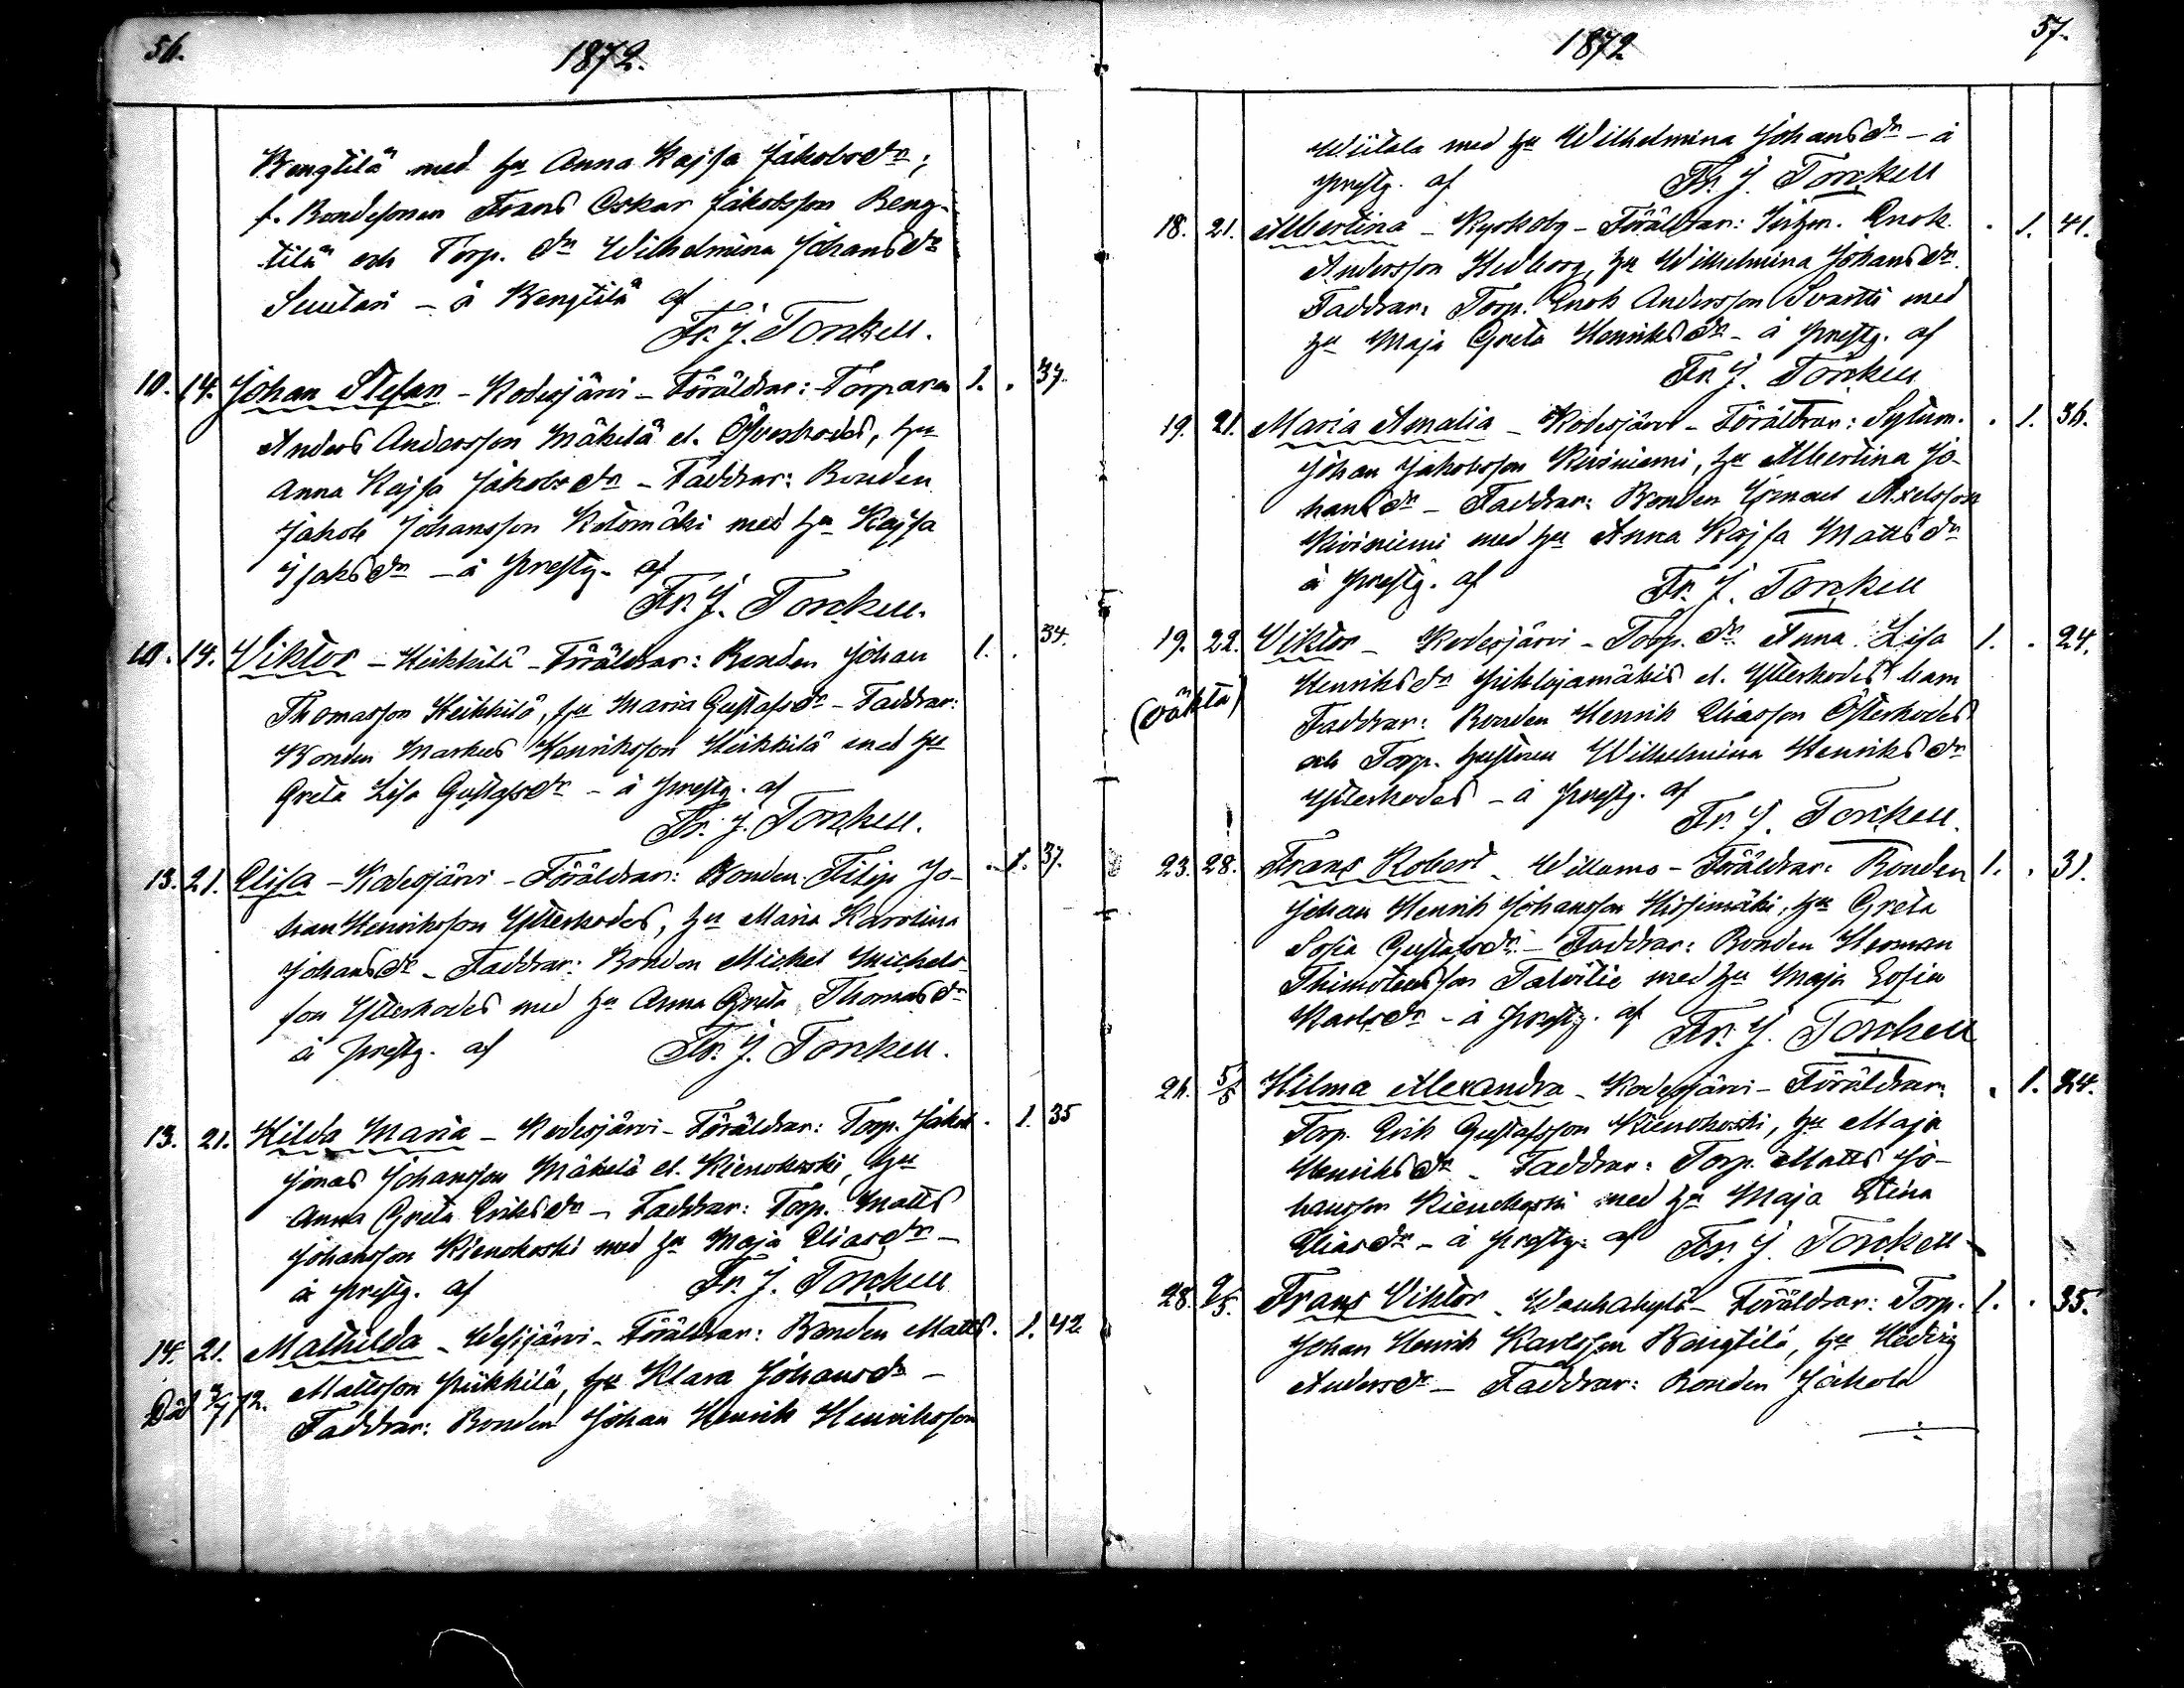 56.
1872.
Bengtilä med hu Anna Kajsa Jakobsdr;
f. Bondesonen Frans Oskar Jakobsson Beng-
tilä och Torp. dr Wilhelmina Johansdr
Suutari - å Bengtilä af
Fr. J. Torckell.
10. 14. Johan Stefan - Kodesjärvi - Föräldrar: Torparen 1. . 37.
Anders Andersson Mäkelä el. Öfverkodes, hu
Anna Kajsa Jakobsdr - Faddrar: Bonden
Jakob Johansson Kotomäki med hu Kajsa
Isaksdr - å prestg. af
Fr. J. Torckell.
10. 14. Viktor - Heikkilä - Föräldrar: Bonden Johan 1. . 34.
Thomasson Heikkilä, hu Maria Gustafsdr - Faddrar:
Bonden Markus Henriksson Heikkilä med hu
Greta Lisa Gustafsdr - å prestg. af
Fr. J. Torckell.
13. 21. Elisa - Kodesjärvi - Föräldrar: Bonden Filip Jo- . 1. 37.
han Henriksson Ytterkodes, hu Maria Karolina
Johansdr - Faddrar: Bonden Michel Michels-
son Ytterkodes med hu Anna Greta Thomasdr
å prestg. af Fr. J. Torckell.
13. 21. Hilda Maria - Kodesjärvi - Föräldrar: Torp. Jakob . 1. 35
Jonas Johansson Mäkelä el. Kienokoski, hu
Anna Greta Eriksdr - Faddrar: Torp. Matts
Johansson Kienokoski med hu Maja Eliasdr -
å prestg. af Fr. J. Torckell
14. 21. Mathilda - Wesijärvi - Föräldrar: Bonden Matts . 1. 42
Död 72. Mattsson Pükkilä, hu Klara Johansdr -
Faddrar: Bonden Johan Henrik Henriksson
1872
57.
Wiitala med hu Wilhelmina Johansdr - å
prestg. af Fr. J. Torckell
18. 21. Albertina - Kyrkoby - Föräldrar: Enok . 1. 41.
Andersson Hedborg, hu Wilhelmina Johansdr.
Faddrar: Torp. Enok Andersson Svartti med
hu Maja Greta Henriksdr - å prestg. af
Fr. J. Torckell
19. 21. Maria Amalia - Kodesjärvi - Föräldrar: Sytum. . 1. 36.
Johan Jakobsson Kiviniemi, hu Albertina Jo-
hansdr - Faddrar: Bonden Ismael Axelsson
Kiviniemi med hu Anna Kajsa Mattsdr
å prestg. af Fr. J. Torckell
19. 22. Viktor - Kodesjärvi - Torp. dr Anna Lisa 1. . 24.
(oäkta) Henriksdr Pihlajamäkis el. Ytterkodes barn
Faddrar: Bonden Henrik Eliasson Österkodes
och Torp. hustrun Wilhelmina Henriksdr
Ytterkodes - å prestg. af
Fr. J. Torckell.
23. 28. Frans Robert - Willamo - Föräldrar: Bonden 1. . 31.
Johan Henrik Johansson Hirsimäki, hu Greta
Sofia Gustafsdr - Faddrar: Bonden Herman
Thimoteusson Talvitie med hu Maja Sofia
Karlsdr - å prestg. af Fr. J. Torckell
26. 5/5 Hilma Alexandra - Kodesjärvi - Föräldrar: . 1. 24.
Torp. Erik Gustafsson Kienokoski, hu Maja
Henriksdr - Faddrar: Torp. Matts Jo-
hansson Kienokoski med hu Maja Stina
Eliasdr - å prestg. af Fr. J. Torckell
28. 2/5. Frans Viktor - Wanhakylä - Föräldrar: Torp. 1. . 35.
Johan Henrik Karlsson Bengtilä, hu Hedvig
Andersdr - Faddrar: Bonden Jakob